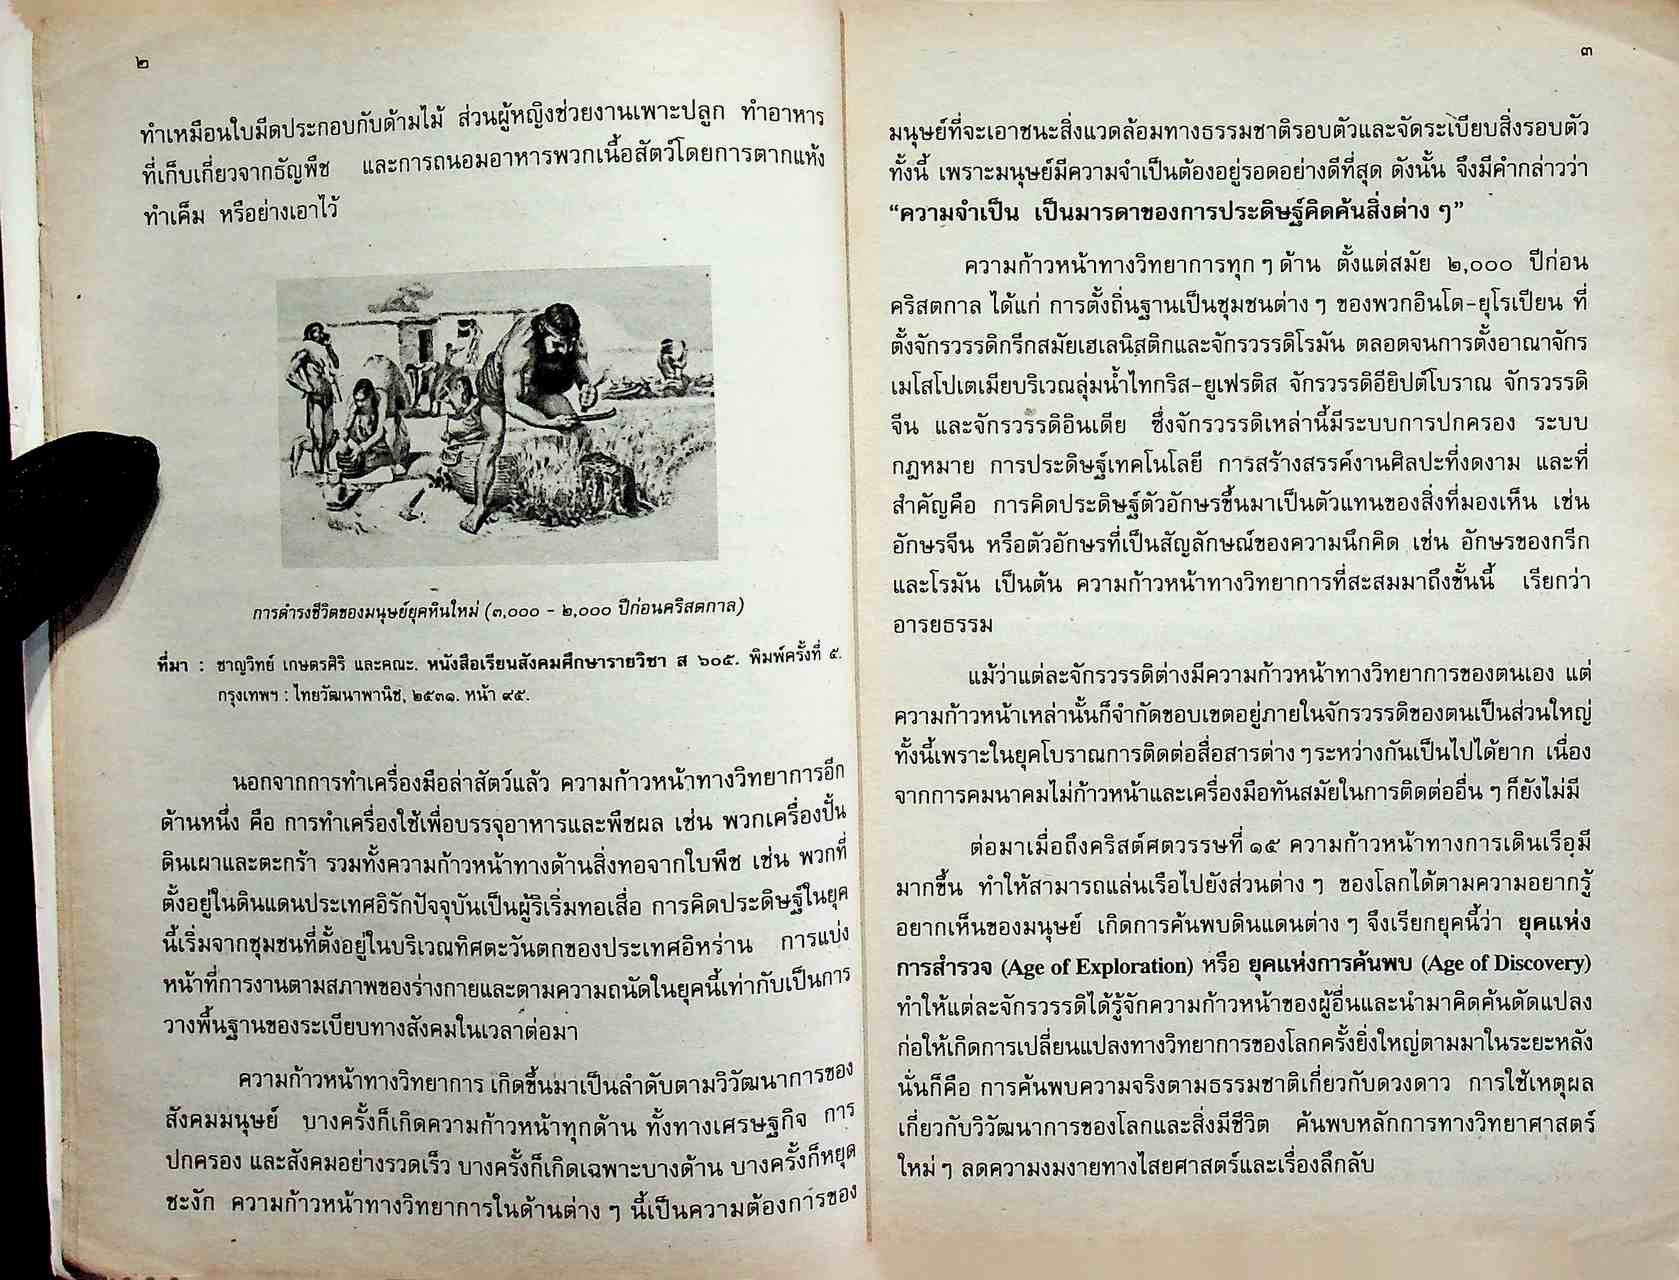 ๒
ทำเหมือนใบมีดประกอบกับด้ามไม้ ส่วนผู้หญิงช่วยงานเพาะปลูก ทำอาหาร
ที่เก็บเกี่ยวจากธัญพืช และการถนอมอาหารพวกเนื้อสัตว์โดยการตากแห้ง
ทำเค็ม หรือย่างเอาไว้
การดำรงชีวิตของมนุษย์ยุคหินใหม่ (๓,๐๐๐ - ๒,๐๐๐ ปีก่อนคริสตกาล)
ที่มา : ชาญวิทย์ เกษตรศิริ และคณะ. หนังสือเรียนสังคมศึกษารายวิชา ส ๖๐๕. พิมพ์ครั้งที่ ๕.
กรุงเทพฯ : ไทยวัฒนาพานิช, ๒๕๓๑. หน้า ๙๕.
นอกจากการทำเครื่องมือล่าสัตว์แล้ว ความก้าวหน้าทางวิทยาการอีก
ด้านหนึ่ง คือ การทำเครื่องใช้เพื่อบรรจุอาหารและพืชผล เช่น พวกเครื่องปั้น
ดินเผาและตะกร้า รวมทั้งความก้าวหน้าทางด้านสิ่งทอจากใบพืช เช่น พวกที่
ตั้งอยู่ในดินแดนประเทศอิรักปัจจุบันเป็นผู้ริเริ่มทอเสื่อ การคิดประดิษฐ์ในยุค
นี้เริ่มจากชุมชนที่ตั้งอยู่ในบริเวณทิศตะวันตกของประเทศอิหร่าน การแบ่ง
หน้าที่การงานตามสภาพของร่างกายและตามความถนัดในยุคนี้เท่ากับเป็นการ
วางพื้นฐานของระเบียบทางสังคมในเวลาต่อมา
ความก้าวหน้าทางวิทยาการ เกิดขึ้นมาเป็นลำดับตามวิวัฒนาการของ
สังคมมนุษย์ บางครั้งก็เกิดความก้าวหน้าทุกด้าน ทั้งทางเศรษฐกิจ การ
ปกครอง และสังคมอย่างรวดเร็ว บางครั้งก็เกิดเฉพาะบางด้าน บางครั้งก็หยุด
ชะงัก ความก้าวหน้าทางวิทยาการในด้านต่าง ๆ นี้เป็นความต้องการของ
๓
มนุษย์ที่จะเอาชนะสิ่งแวดล้อมทางธรรมชาติรอบตัวและจัดระเบียบสิ่งรอบตัว
ทั้งนี้ เพราะมนุษย์มีความจำเป็นต้องอยู่รอดอย่างดีที่สุด ดังนั้น จึงมีคำกล่าวว่า
“ความจำเป็น เป็นมารดาของการประดิษฐ์คิดค้นสิ่งต่าง ๆ”
ความก้าวหน้าทางวิทยาการทุก ๆ ด้าน ตั้งแต่สมัย ๒,๐๐๐ ปีก่อน
คริสตกาล ได้แก่ การตั้งถิ่นฐานเป็นชุมชนต่าง ๆ ของพวกอินโด-ยุโรเปียน ที่
ตั้งจักรวรรดิกรีกสมัยเฮเลนิสติกและจักรวรรดิโรมัน ตลอดจนการตั้งอาณาจักร
เมโสโปเตเมียบริเวณลุ่มน้ำไทกริส-ยูเฟรติส จักรวรรดิอียิปต์โบราณ จักรวรรดิ
จีน และจักรวรรดิอินเดีย ซึ่งจักรวรรดิเหล่านี้มีระบบการปกครอง ระบบ
กฎหมาย การประดิษฐ์เทคโนโลยี การสร้างสรรค์งานศิลปะที่งดงาม และที่
สำคัญคือ การคิดประดิษฐ์ตัวอักษรขึ้นมาเป็นตัวแทนของสิ่งที่มองเห็น เช่น
อักษรจีน หรือตัวอักษรที่เป็นสัญลักษณ์ของความนึกคิด เช่น อักษรของกรีก
และโรมัน เป็นต้น ความก้าวหน้าทางวิทยาการที่สะสมมาถึงขั้นนี้ เรียกว่า
อารยธรรม
แม้ว่าแต่ละจักรวรรดิต่างมีความก้าวหน้าทางวิทยาการของตนเอง แต่
ความก้าวหน้าเหล่านั้นก็จำกัดขอบเขตอยู่ภายในจักรวรรดิของตนเป็นส่วนใหญ่
ทั้งนี้เพราะในยุคโบราณการติดต่อสื่อสารต่าง ๆ ระหว่างกันเป็นไปได้ยาก เนื่อง
จากการคมนาคมไม่ก้าวหน้าและเครื่องมือทันสมัยในการติดต่ออื่น ๆ ก็ยังไม่มี
ต่อมาเมื่อถึงคริสต์ศตวรรษที่ ๑๕ ความก้าวหน้าทางการเดินเรือมี
มากขึ้น ทำให้สามารถแล่นเรือไปยังส่วนต่าง ๆ ของโลกได้ตามความอยากรู้
อยากเห็นของมนุษย์ เกิดการค้นพบดินแดนต่าง ๆ จึงเรียกยุคนี้ว่า ยุคแห่ง
การสำรวจ (Age of Exploration) หรือ ยุคแห่งการค้นพบ (Age of Discovery)
ทำให้แต่ละจักรวรรดิได้รู้จักความก้าวหน้าของผู้อื่นและนำมาคิดค้นดัดแปลง
ก่อให้เกิดการเปลี่ยนแปลงทางวิทยาการของโลกครั้งยิ่งใหญ่ตามมาในระยะหลัง
นั่นก็คือ การค้นพบความจริงตามธรรมชาติเกี่ยวกับดวงดาว การใช้เหตุผล
เกี่ยวกับวิวัฒนาการของโลกและสิ่งมีชีวิต ค้นพบหลักการทางวิทยาศาสตร์
ใหม่ ๆ ลดความงมงายทางไสยศาสตร์และเรื่องลึกลับ